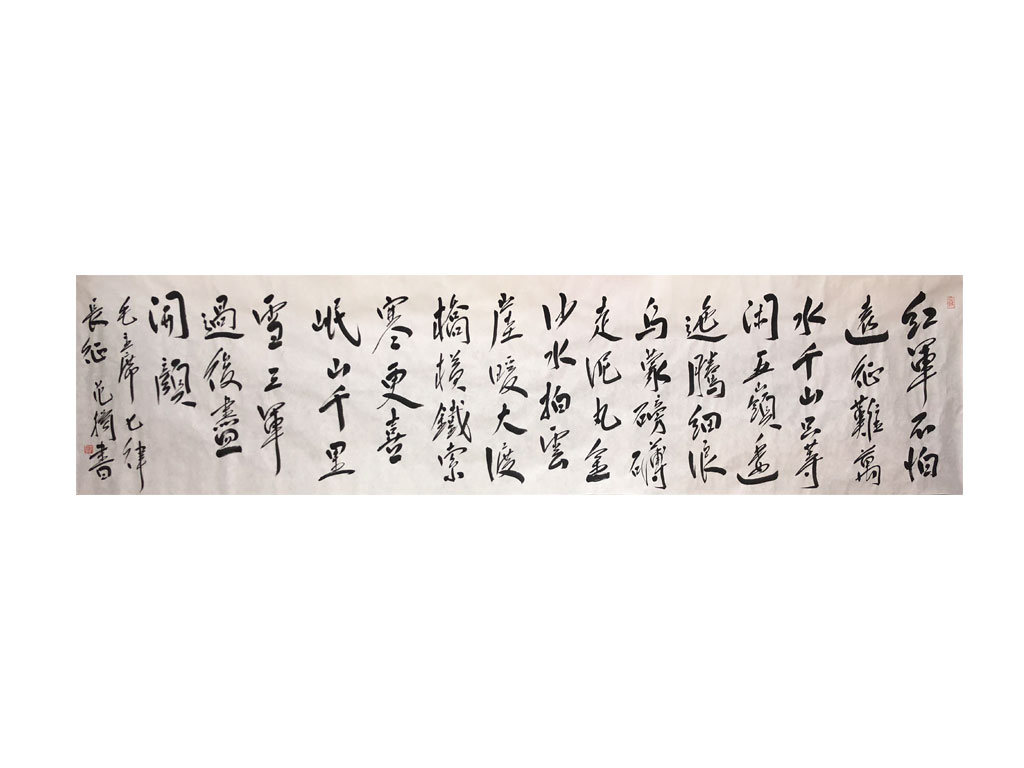 紅軍不怕
遠征難萬
水千山只等
闲五嶺逶
迤騰細浪
烏蒙磅礴
走泥丸金
沙水拍雲
崖暖大渡
橋橫鐵索
寒更喜
岷山千里
雪三軍
過後盡
開顏
毛主席七律
長征 范書